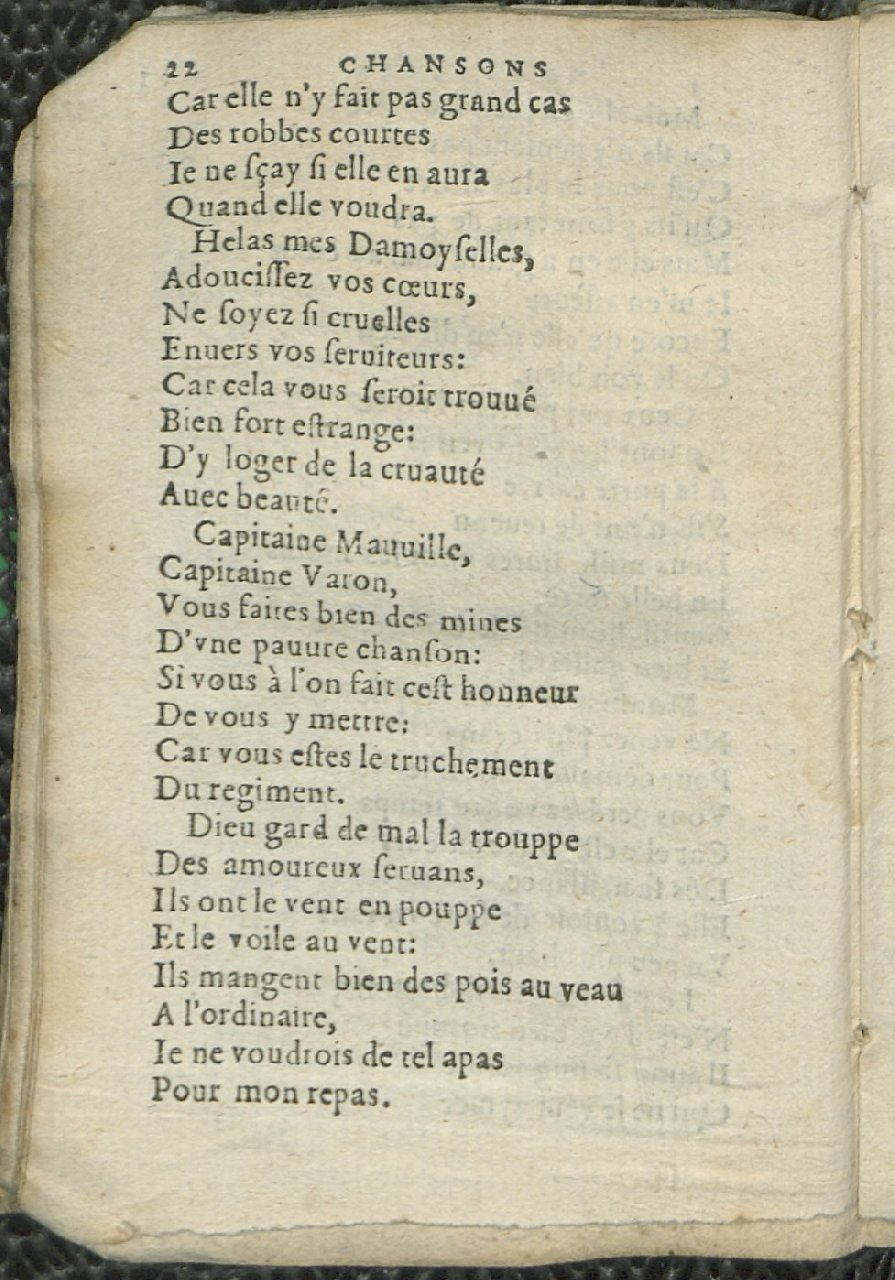 22 CHANSONS
Car elle n'y fait pas grand cas
Des robbes courtes
Ie ne ſçay ſi elle en aura
Quand elle voudra.
Helas mes Damoyſelles,
Adouciſſez vos cœurs,
Ne ſoyez ſi cruelles
Enuers vos ſeruiteurs:
Car cela vous ſeroit trouué
Bien fort eſtrange:
D'y loger de la cruauté
Auec beauté.
Capitaine Mauuille,
Capitaine Varon,
Vous faites bien des mines
D'vne pauure chanſon:
Si vous à l'on fait ceſt honneur
De vous y mettre:
Car vous eſtes le truchement
Du regiment.
Dieu gard de mal la trouppe
Des amoureux ſeruans,
Ils ont le vent en pouppe
Et le voile au vent:
Ils mangent bien des pois au veau
A l'ordinaire,
Ie ne voudrois de tel apas
Pour mon repas.